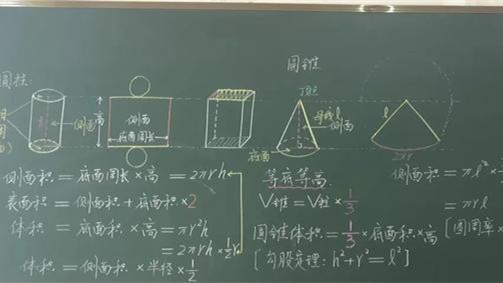 圆柱:
圆锥
顶点
侧面
高
侧面
底面周长
母线l
侧面
底面
l
2πr
侧面积 = 底面周长 × 高 = 2πrh
表面积 = 侧面积 + 底面积 × 2
体积 = 底面积 × 高 = πr²h
= 2πrh × 1/2 r
体积 = 侧面积 × 半径 × 1/2
等底等高
V锥 = V柱 × 1/3
圆锥体积 = 1/3 × 底面积 × 高
[勾股定理: h² + r² = l²]
侧面积 = πl² ×
= πrl
[圆周率 ×